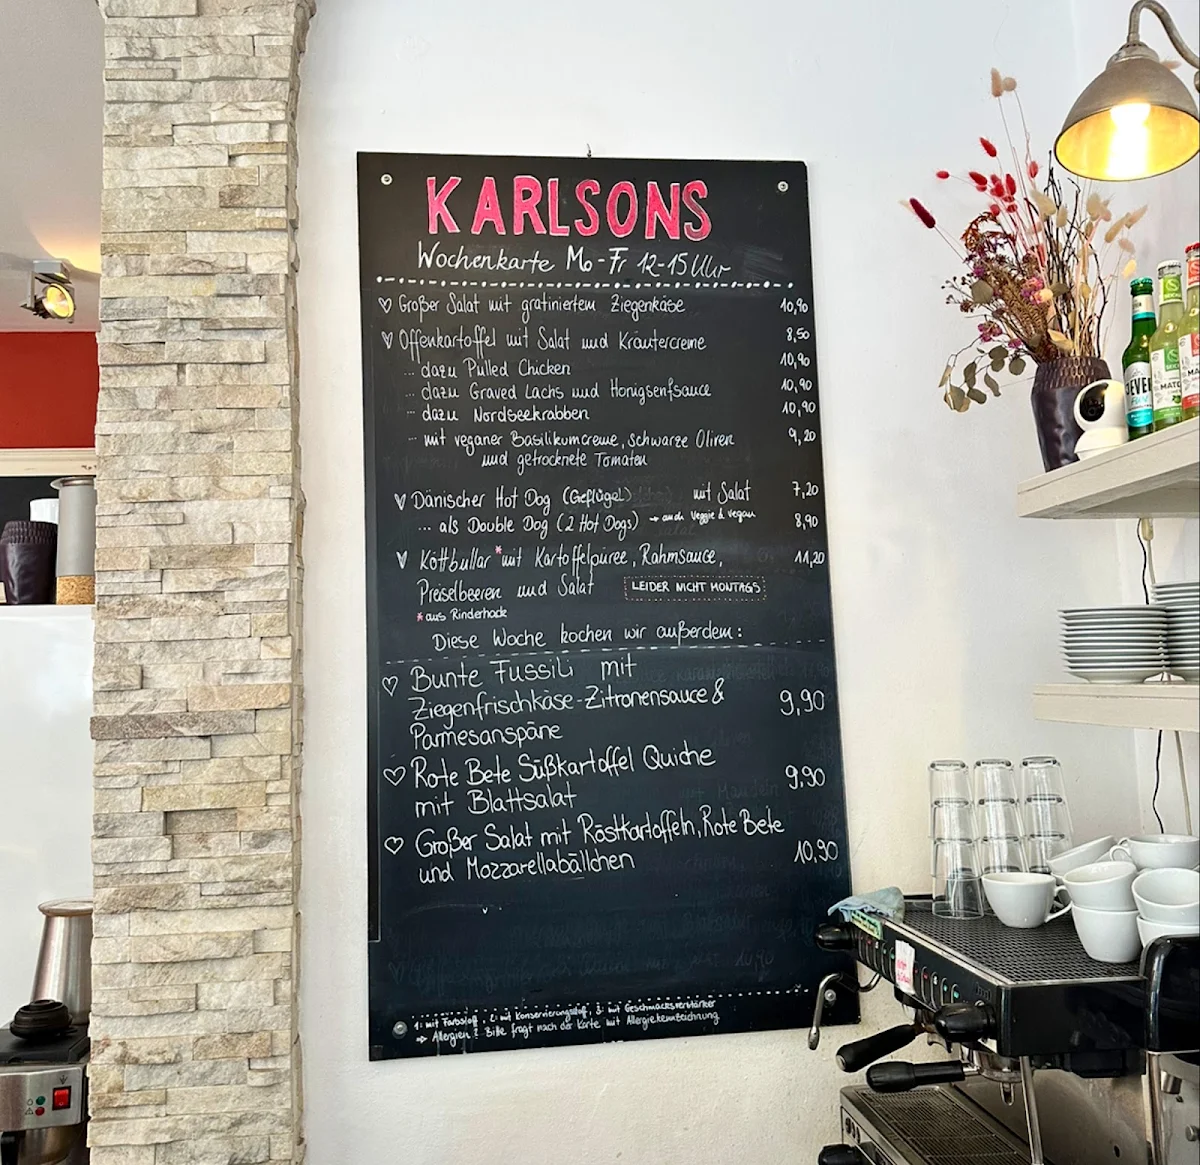 KARLSONS
Wochenkarte Mo-Fr 12-15 Uhr
Großer Salat mit gratiniertem Ziegenkäse 10,90
Offenkartoffel mit Salat und Kräutercreme 8,50
... dazu Pulled Chicken 10,90
... dazu Graved Lachs und Honigsenfsauce 10,90
... dazu Nordseekrabben 10,90
... mit veganer Basilikumcreme, schwarze Oliven 9,20
und getrocknete Tomaten
Dänischer Hot Dog (Geflügel) mit Salat 7,20
... als Double Dog (2 Hot Dogs) → auch Veggie & Vegan 8,90
Köttbullar * mit Kartoffelpüree, Rahmsauce, 11,20
Preiselbeeren und Salat LEIDER NICHT MONTAGS
* aus Rinderhack
Diese Woche kochen wir außerdem:
Bunte Fussili mit
Ziegenfrischkäse-Zitronensauce & 9,90
Parmesanspäne
Rote Bete Süßkartoffel Quiche 9,90
mit Blattsalat
Großer Salat mit Röstkartoffeln, Rote Bete
und Mozzarellabällchen 10,90
1: mit Farbstoff, 2: mit Konservierungsstoff, 3: mit Geschmacksverstärker
⇒ Allergien: Bitte fragt nach der Karte mit Allergiekennzeichnung